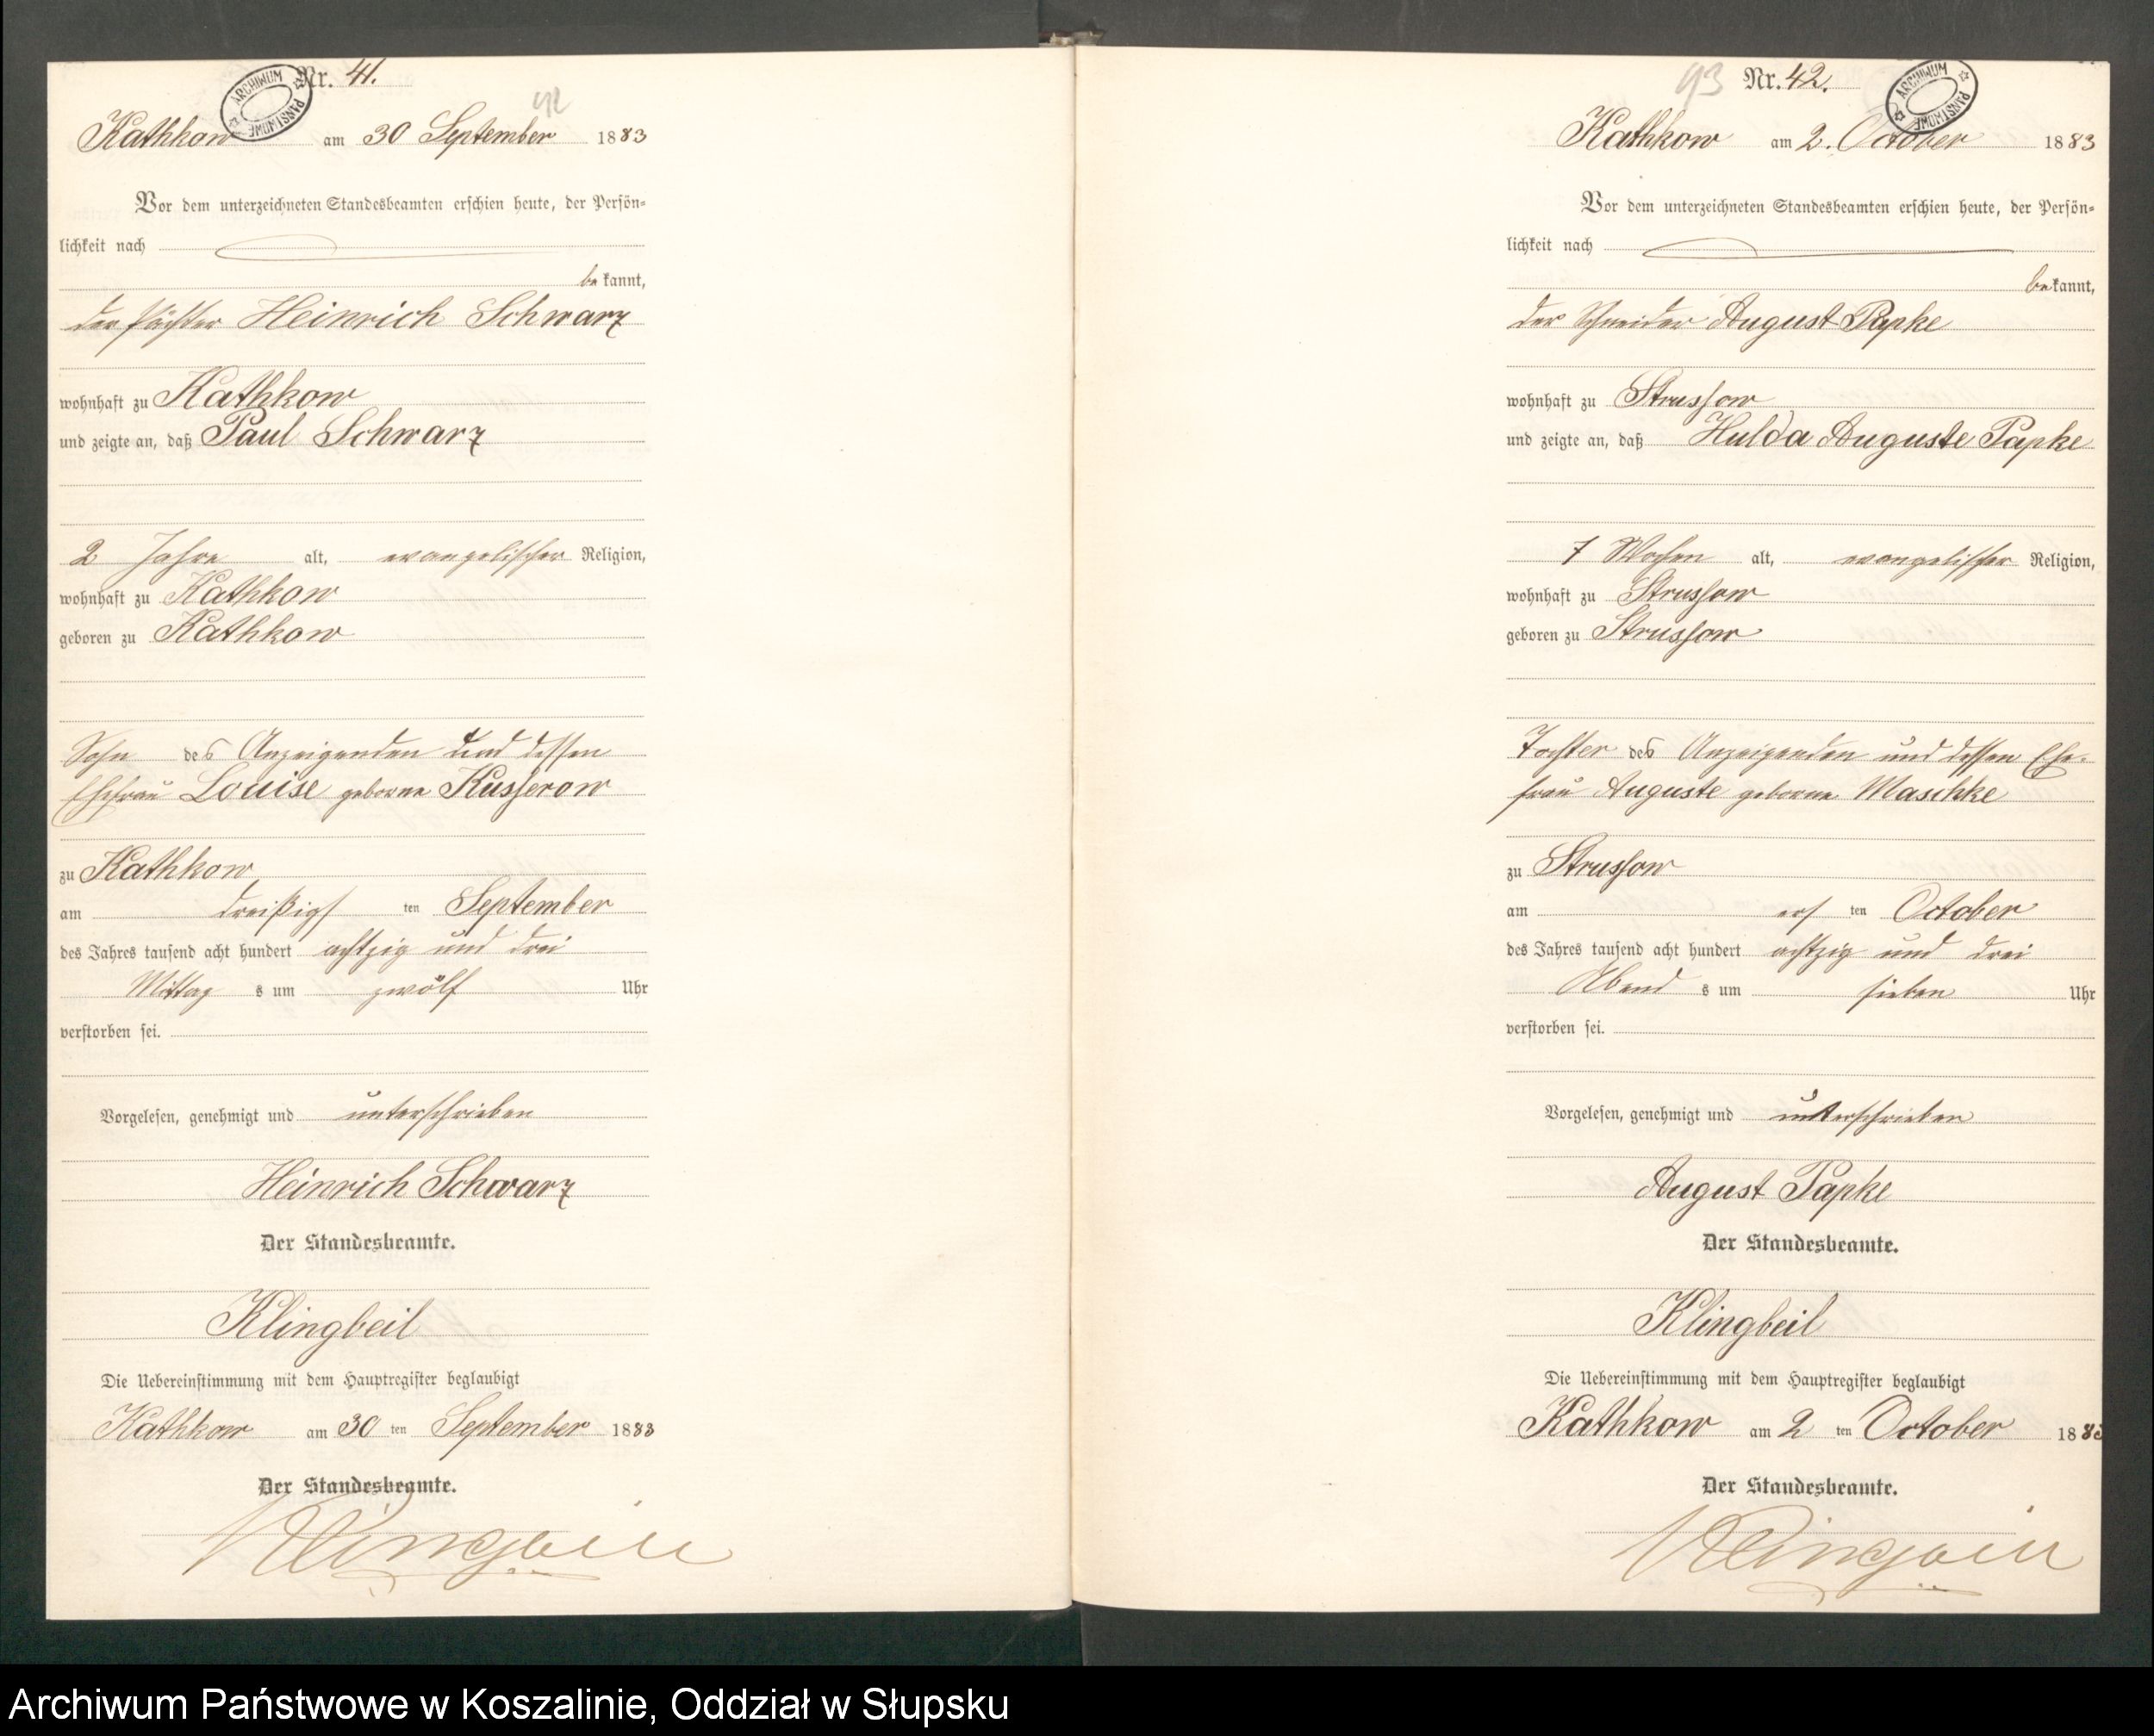 Nr. 41.
42
ARCHIWUM PAŃSTWOWE
Kathkow am 30 September 1883
Vor dem unterzeichneten Standesbeamten erschien heute, der Persön-
lichkeit nach
bekannt,
der Pächter Heinrich Schwarz
wohnhaft zu Kathkow
und zeigte an, daß Paul Schwarz
2 Jahre alt, evangelischer Religion,
wohnhaft zu Kathkow
geboren zu Kathkow
Sohn des Anzeigenden und dessen
Ehefrau Louise geborne Kusserow
zu Kathkow
am dreißigsten September
des Jahres tausend acht hundert achtzig und drei
Mittags um zwölf Uhr
verstorben sei.
Vorgelesen, genehmigt und unterschrieben
Heinrich Schwarz
Der Standesbeamte.
Klingbeil
Die Uebereinstimmung mit dem Hauptregister beglaubigt
Kathkow am 30 ten September 1883
Der Standesbeamte.
Klingbeil
93 Nr. 42.
ARCHIWUM PAŃSTWOWE
Kathkow am 2. October 1883
Vor dem unterzeichneten Standesbeamten erschien heute, der Persön-
lichkeit nach
bekannt,
der Schneider August Papke
wohnhaft zu Strussow
und zeigte an, daß Hulda Auguste Papke
7 Wochen alt, evangelischer Religion,
wohnhaft zu Strussow
geboren zu Strussow
Tochter des Anzeigenden und dessen Ehe-
frau Auguste geborne Maschke
zu Strussow
am ersten October
des Jahres tausend acht hundert achtzig und drei
Abends um sieben Uhr
verstorben sei.
Vorgelesen, genehmigt und unterschrieben
August Papke
Der Standesbeamte.
Klingbeil
Die Uebereinstimmung mit dem Hauptregister beglaubigt
Kathkow am 2 ten October 1883
Der Standesbeamte.
Klingbeil
Archiwum Państwowe w Koszalinie, Oddział w Słupsku